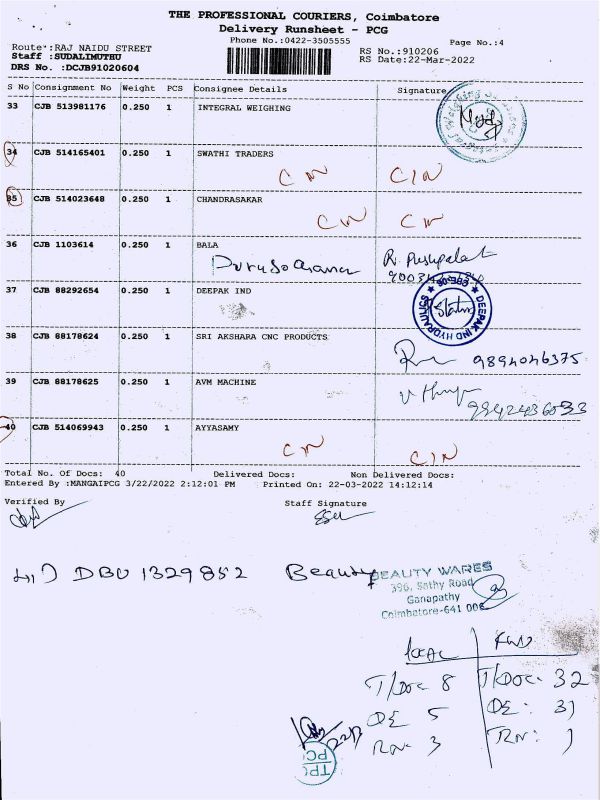 THE PROFESSIONAL COURIERS, Coimbatore
Delivery Runsheet - PCG
Phone No.:0422-3505555
Page No.:4
Route :RAJ NAIDU STREET
RS No.:910206
Staff :SUDALIMUTHU
RS Date:22-Mar-2022
DRS No. :DCJB91020604
S No Consignment No Weight PCS Consignee Details Signature
33 CJB 513981176 0.250 1 INTEGRAL WEIGHING
34 CJB 514165401 0.250 1 SWATHI TRADERS
CN CIN
35 CJB 514023648 0.250 1 CHANDRASAKAR
CN CN
36 CJB 1103614 0.250 1 BALA
37 CJB 88292654 0.250 1 DEEPAK IND
DEEPAK IND HYDRAULICS
CBE-06
38 CJB 88178624 0.250 1 SRI AKSHARA CNC PRODUCTS
9894046375
39 CJB 88178625 0.250 1 AVM MACHINE
40 CJB 514069943 0.250 1 AYYASAMY
CN CIN
Total No. Of Docs: 40 Delivered Docs: Non Delivered Docs:
Entered By :MANGAIPCG 3/22/2022 2:12:01 PM Printed On: 22-03-2022 14:12:14
Verified By Staff Signature
41) DBU 1329852 Beauty
BEAUTY WARES
396, Sathy Road
Ganapathy
Coimbatore-641 006
T/Doc 8 T/Doc- 32
5 31
RN- 3 RN: 1
TPC